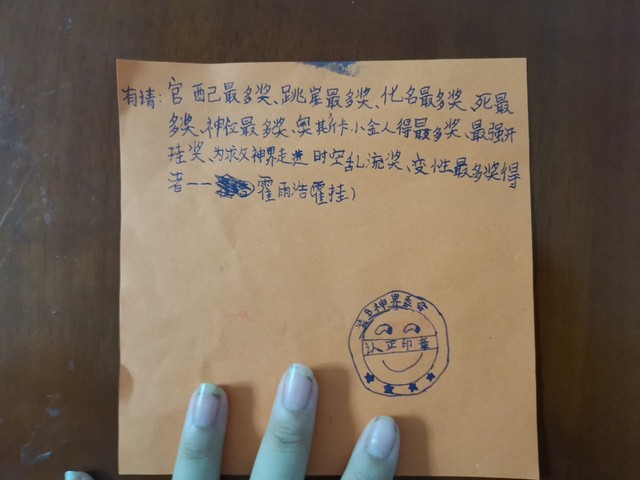 有请：官配己最多奖、跳崖最多奖、化名最多奖、死最
多奖、神位最多奖、奥斯卡小金人得最多奖、最强开
挂奖、为救父神界走进时空乱流奖、变性最多奖得
者——霍雨浩(霍挂)
装B神界委会
认正印章